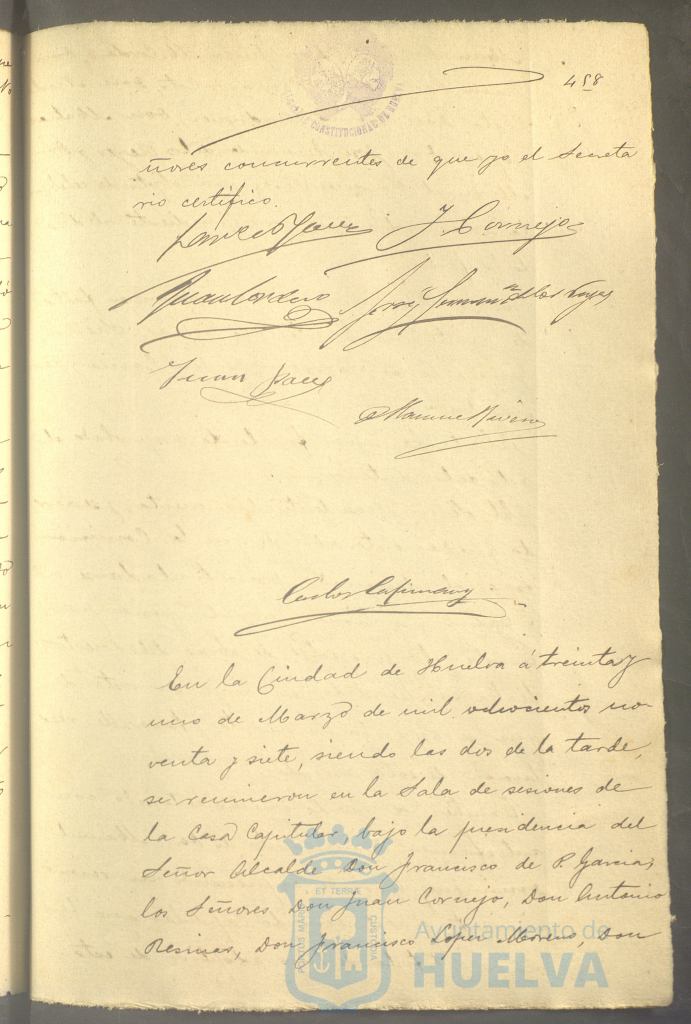 458
CONSTITUCIONAL DE HUELVA
ñores concurrentes de que yo el Secreta
rio certifico.
J Cornejo
Juan Cordero
José
Juan
Manuel Rivero
Carlos
En la Ciudad de Huelva á treinta y
uno de Marzo de mil ochocientos no-
venta y siete, siendo las dos de la tarde,
se reunieron en la Sala de sesiones de
la Casa Capitular, bajo la presidencia del
Señor Alcalde Don Francisco de P. Garcia,
los Señores Don Juan Cornejo, Don Antonio
Resines, Don Francisco Lopez Moreno, Don
PORTUS MARIS ET TERRE CUSTODIA
Ayuntamiento de
HUELVA